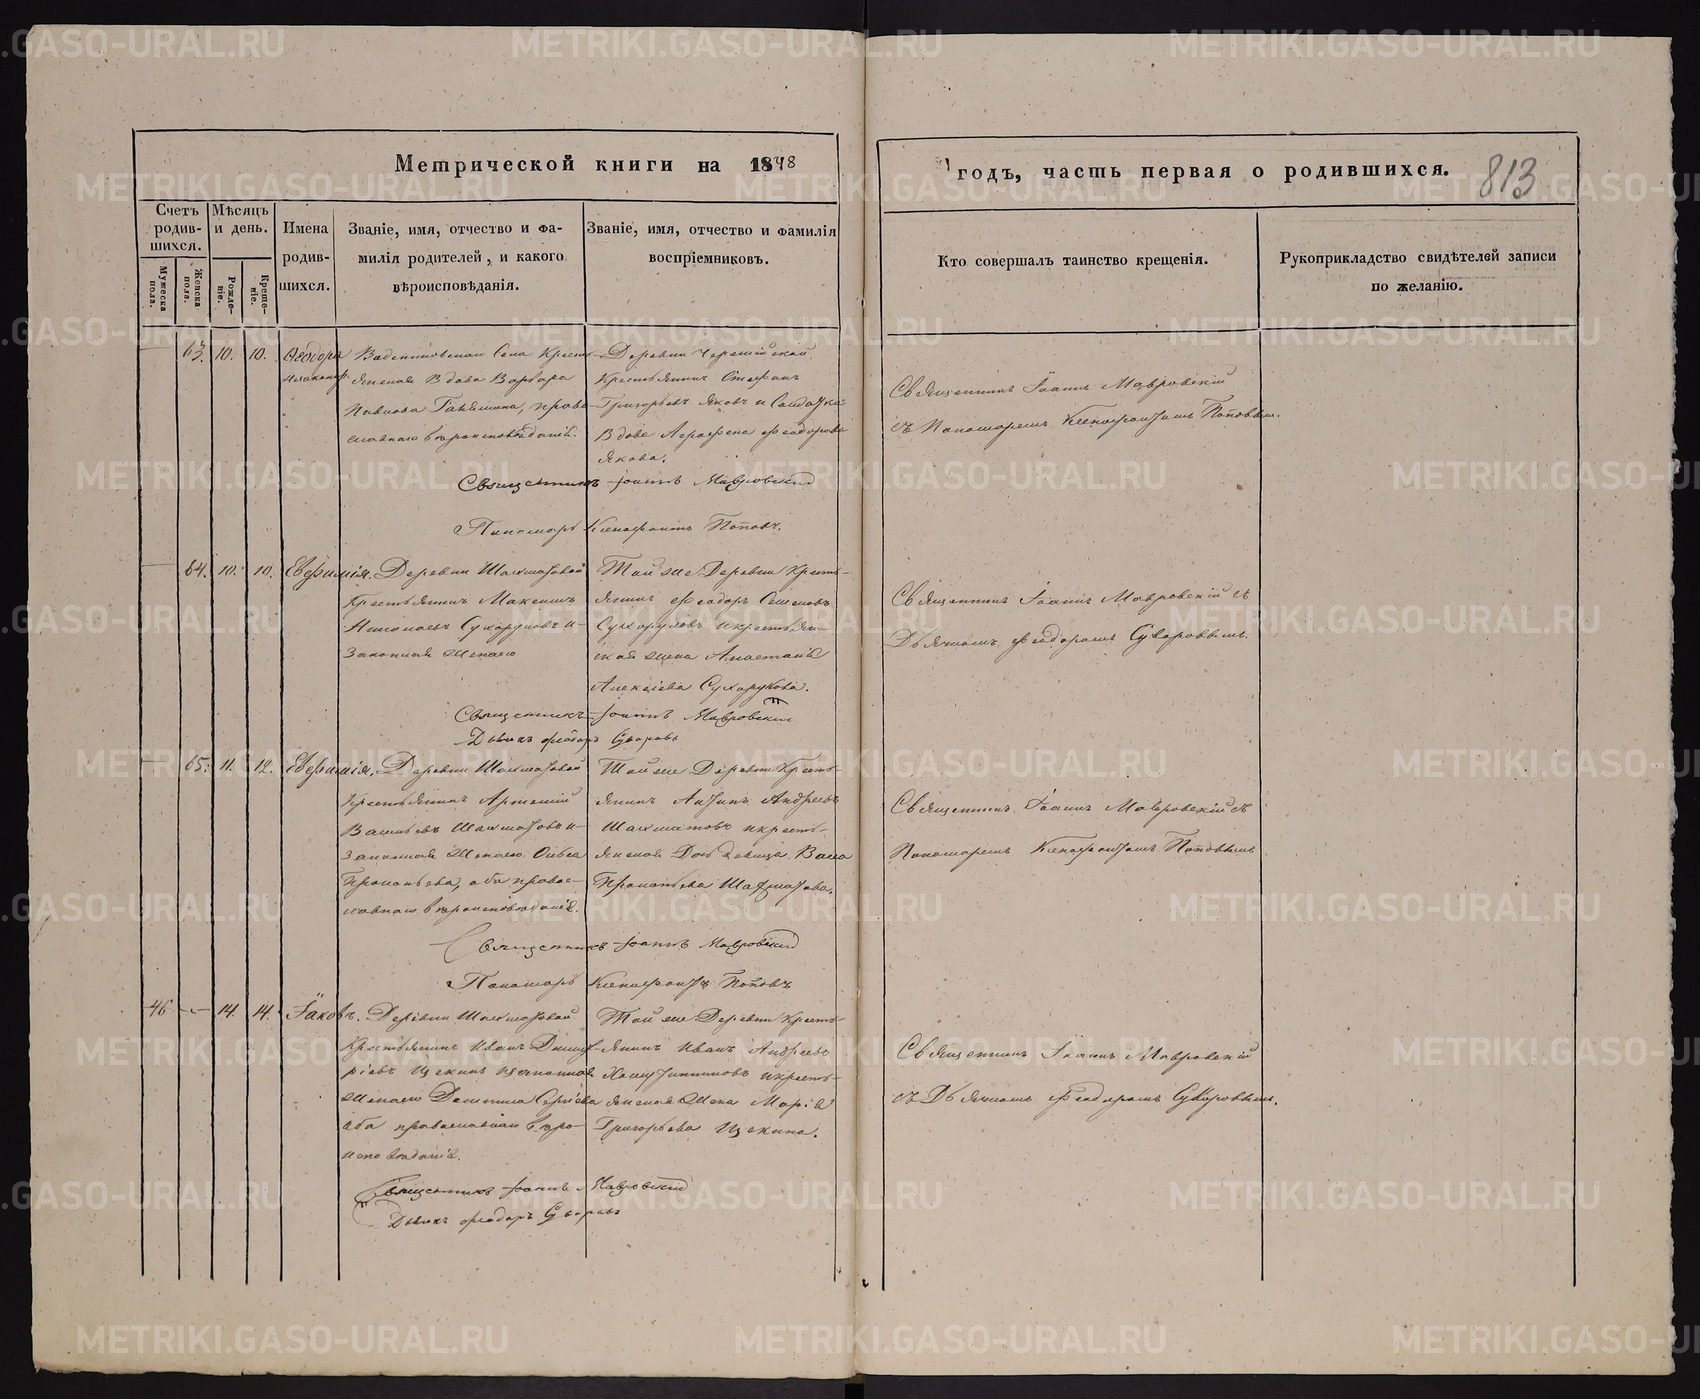 Метрической книги на 1848
годъ, часть первая о родившихся.
813
Счетъ родив-шихся.
Мужеска пола.
Женска пола.
Мѣсяцъ и день.
Рожде-ніе.
Креще-ніе.
Имена родив-шихся.
Званіе, имя, отчество и фа-
милія родителей, и какого
вѣроисповѣданія.
Званіе, имя, отчество и фамилія
воспріемниковъ.
Кто совершалъ таинство крещенія.
Рукоприкладство свидѣтелей записи
по желанію.
63. 10. 10. Ѳеодора
незаконнор.
Села Кресть-
янская Вдова Варвара
Павлова право-
славнаго вѣроисповѣданія.
Деревни
Крестьянинъ Стефанъ
Григорьевъ Яковъ и Солдатка
Вдова Аграфена Ѳеодорова
Якова.
Священникъ Іоаннъ Мавровскій
съ Пономаремъ Ксенофонтомъ Поповымъ.
Священникъ Іоаннъ Мавровскій
Пономарь Ксенофонтъ Поповъ.
64. 10. 10. Евѳимія.
Деревни Шахматовой
Крестьянинъ Максимъ
Николаевъ Сухоруковъ и
Законная Жена его
Той же Деревни Кресть-
янинъ Ѳеодоръ Семеновъ
Сухоруковъ и крестьян-
ская жена Анастасія
Алексіева Сухорукова.
Священникъ Іоаннъ Мавровскій съ
Дьячкомъ Ѳеодоромъ Суворовымъ.
Священникъ Іоаннъ Мавровскій
Дьячекъ Ѳеодоръ Суворовъ
65. 11. 12. Евѳимія.
Деревни Шахматовой
Крестьянинъ Артемій
Васильевъ Шахматовъ и
Законная Жена его
Прокопьева, оба право-
славнаго вѣроисповѣданія.
Той же Деревни Кресть-
янинъ Андреевъ
Шахматовъ и кресть-
янская Дочь Девица Васса
Прокопьева Шахматова.
Священникъ Іоаннъ Мавровскій съ
Пономаремъ Ксенофонтомъ Поповымъ
Священникъ Іоаннъ Мавровскій
Пономарь Ксенофонтъ Поповъ
46 14. 14. Іаковъ.
Деревни Шахматовой
Крестьянинъ Иванъ Димит-
ріевъ Щекинъ и законная
Жена его Сергіева
оба православнаго вѣро-
исповѣданія.
Той же Деревни Кресть-
янинъ Иванъ Андреевъ
и кресть-
янская Жена Марія
Григорьева Щекина.
Священникъ Іоаннъ Мавровскій
съ Дьячкомъ Ѳеодоромъ Суворовымъ.
Священникъ Іоаннъ Мавровскій
Дьячекъ Ѳеодоръ Суворовъ
METRIKI.GASO-URAL.RU